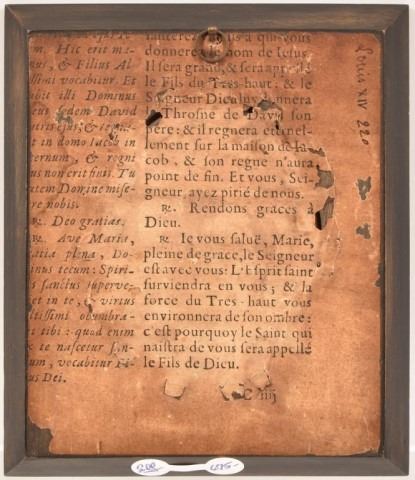 um, Hic erit ma-
nus, & Filius Al
ssimi vocabitur. Et
abit illi Dominus
eus sedem David
atris ejus; & regna-
it in domo Iacob in
ternum, & regni
us non erit finis. Tu
utem Domine mise-
re nobis.
℟. Deo gratias.
℟. Ave Maria,
ratia plena, Do-
inus tecum: Spiri-
s sanctus superve-
et in te, & virtus
ltissimi obumbra-
it tibi: quod enim
x te nascetur San-
um, vocabitur Fi-
us Dei.
fanterez à qui vous
donnerez le nom de Iesus.
Il sera grand, & sera appellé
le Fils du Tres-haut: & le
Seigneur Dieu luy donnera
le Throsne de David son
pere: & il regnera eternel-
lement sur la maison de Ia-
cob, & son regne n'aura
point de fin. Et vous, Sei-
gneur, ayez pitié de nous.
℟. Rendons graces à
Dieu.
℟. Ie vous saluë, Marie,
pleine de grace, le Seigneur
est avec vous: L'Esprit saint
surviendra en vous; & la
force du Tres-haut vous
environnera de son ombre:
c'est pourquoy le Saint qui
naistra de vous sera appellé
le Fils de Dieu.
C iiij
Louis XIV 220